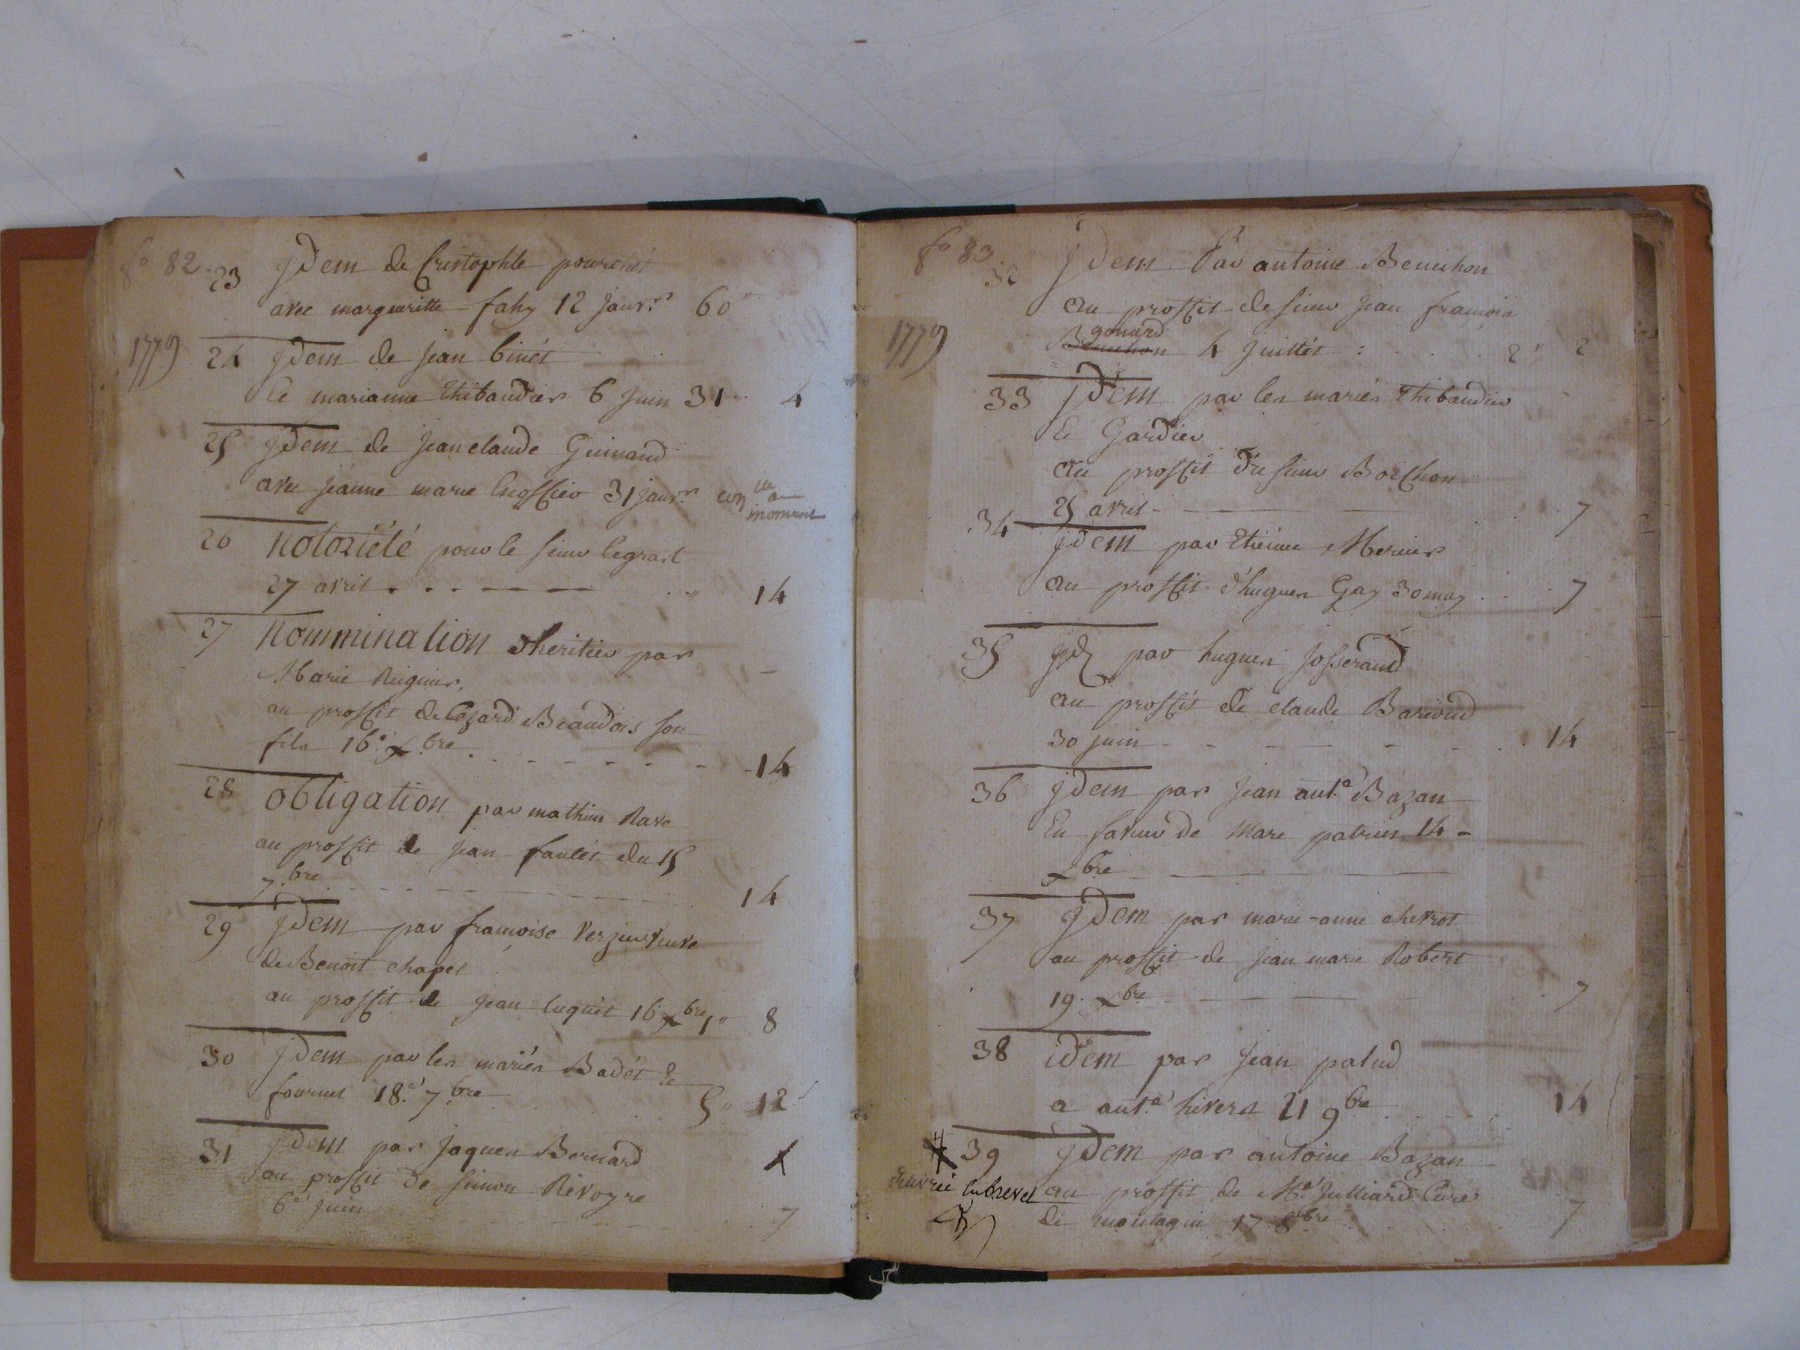 fo 82
23 jdem de Cristophle pourchet
avec margueritte fahy 12 janv.r 60"
1779
24 jdem de jean binét
Et marianne thibaudier 6 juin 31 4
25 jdem de jean claude Guinand
avec jeanne marie 31 janv.r
26 Notoriété pour le sieur legrat
27 avril 14
27 Nommination d'heritier par
Marie Regnier,
au proffit de Lazard Beaudois son
fils 16.e xbre 14
28 obligation par mathieu Rave
au proffit de jean fautés du 15
7.bre 14
29 jdem par francoise verjus veuve
de Benoit chapet
au proffit de jean luquét 16 xbre 1" 8
30 jdem par les mariés Badét &
fournet 18.e 7.bre 5" 12
31 jdem par jaques Bernard
au proffit de simon Revoyre
6.e juin 7
fo 83
32 jdem Par antoine Benichon
au proffit de sieur jean francois
gonard
1779
Benichon 4 juillét 2" 2
33 jdem par les mariés Thibaudier
Et Gardier
au proffit du sieur Boichon
25 avril 7
34 jdem par Etienne Mercier
au proffit d'hugues Gay 30 may 7
35 jd par hugues josserand
au proffit de claude Bariond
30 juin 14
36 jdem par jean ant.e Bazan
En faveur de Marc patrin 14
xbre
37 jdem par marie-anne chevrot
au proffit de jean marie Robert
19. xbre 7
38 idem par jean palud
a ant.e hivert 21 9bre 14
39 jdem par antoine Bazan
delivrée En brevet au proffit de M.e julliard Curé
de montagni 17 8bre 7